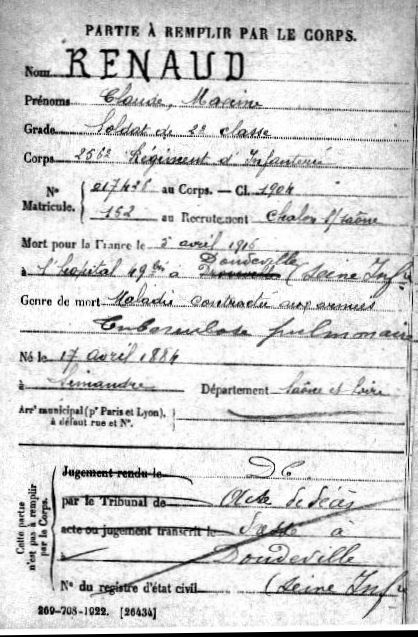 PARTIE À REMPLIR PAR LE CORPS.
Nom RENAUD
Prénoms Claude, Maxime
Grade Soldat de 2e classe
Corps 256e Régiment d'Infanterie
N° Matricule. 017428 au Corps. — Cl. 1904
152 au Recrutement Chalon s/Saône
Mort pour la France le 2 avril 1916
Doudeville
à l'hôpital 49 bis à (Seine Infre
Genre de mort Maladie contractée aux armées
Tuberculose pulmonaire
Né le 17 avril 1884
à Simandre Département Saône et Loire
Arrt municipal (pr Paris et Lyon), à défaut rue et N°.
Cette partie n'est pas à remplir par le Corps.
Jugement rendu le Dc
par le Tribunal de Acte de décès
acte ou jugement transcrit le à
à Doudeville
N° du registre d'état civil (Seine Infre
269-708-1922. [26434]